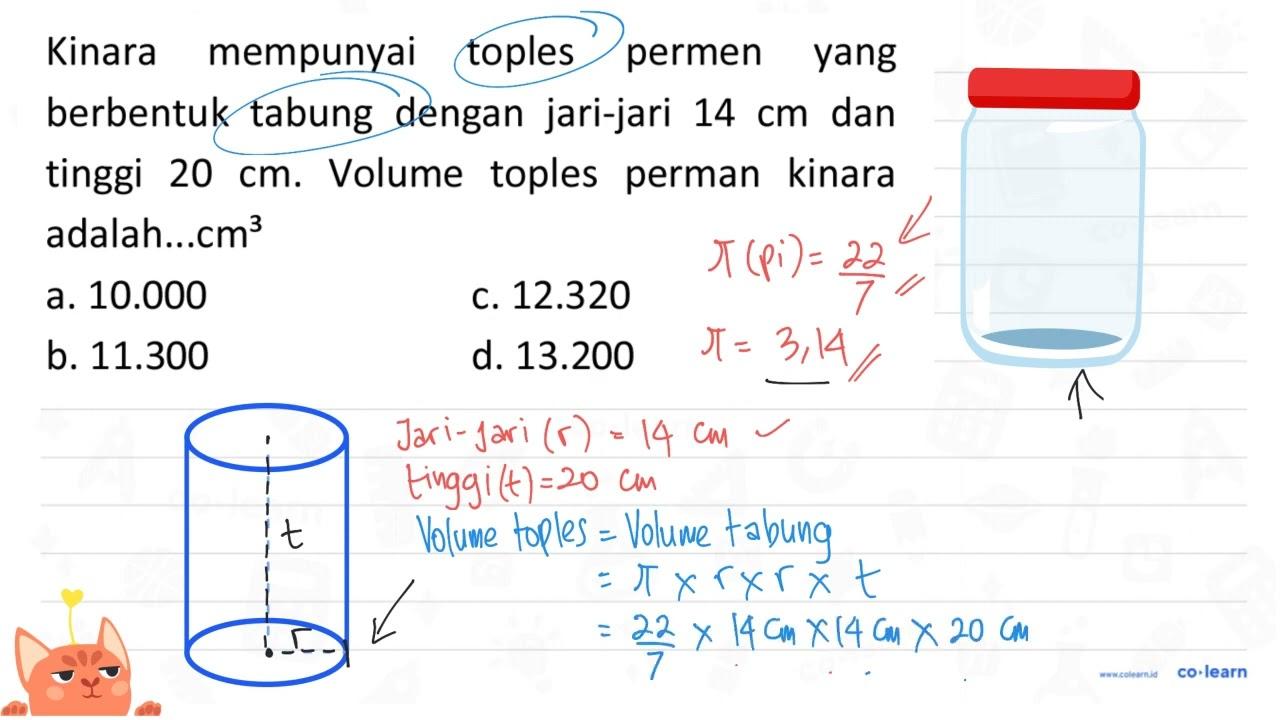 Kinara mempunyai toples permen yang
berbentuk tabung dengan jari-jari 14 cm dan
tinggi 20 cm. Volume toples perman kinara
adalah...cm³
a. 10.000
c. 12.320
b. 11.300
d. 13.200
π (pi) = 22/7
π = 3,14
Jari-jari (r) = 14 cm
tinggi (t) = 20 cm
Volume toples = Volume tabung
= π x r x r x t
= 22/7 x 14 cm x 14 cm x 20 cm
t
r
www.colearn.id
co·learn